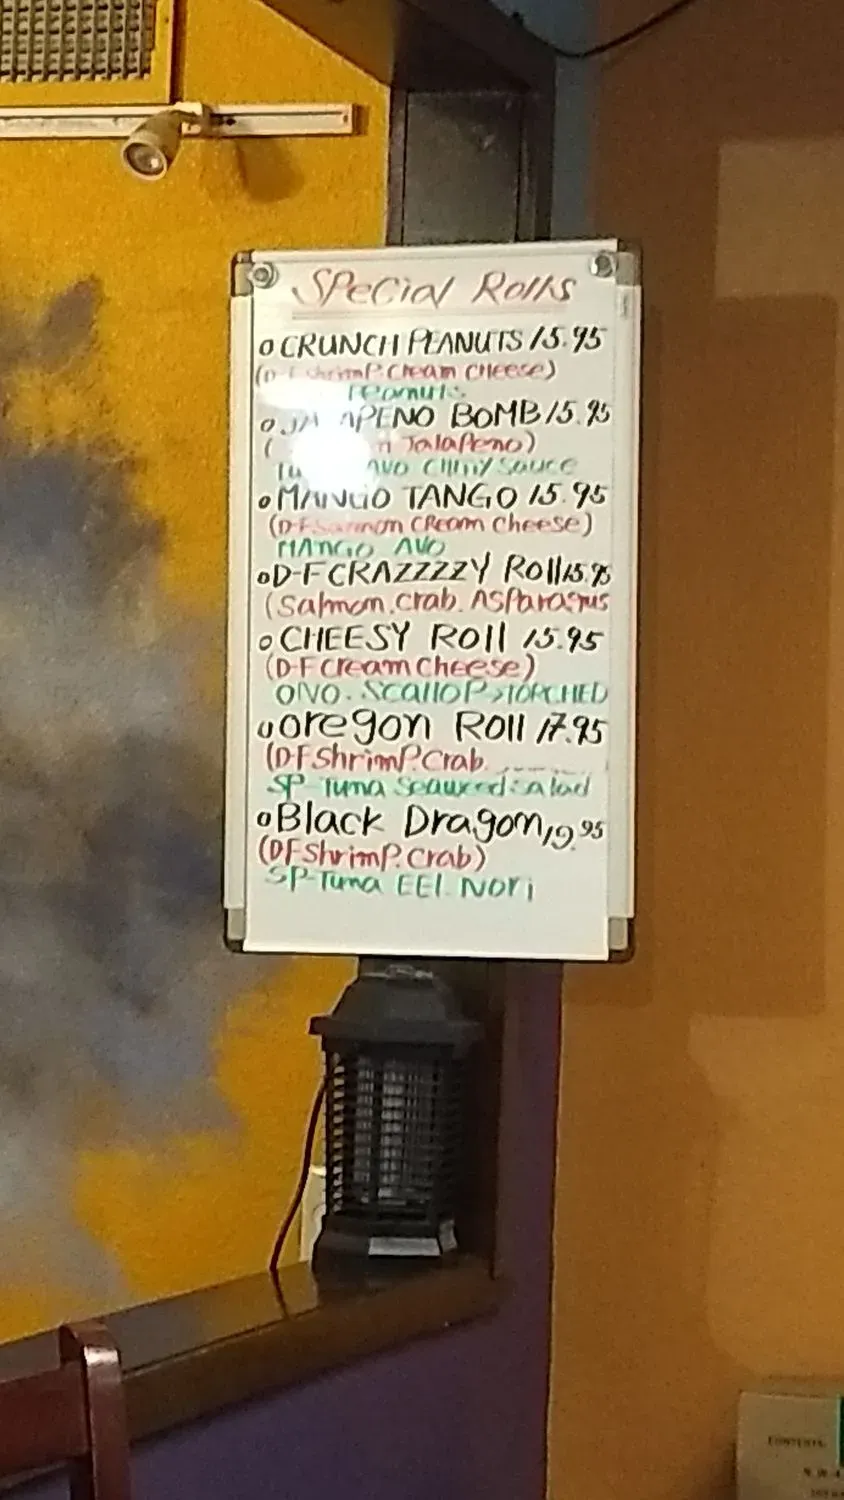 Special Rolls
o CRUNCH PEANUTS 15.95
(D-F shrimp. Cream Cheese)
Peanuts
o JALAPENO BOMB 15.95
( Jalapeno)
AVO Chilly Sauce
o MANGO TANGO 15.95
(D-F Salmon Cream Cheese)
MANGO AVO
o D-F CRAZZZZY Roll 15.95
(Salmon. Crab. Asparagus
o CHEESY Roll 15.95
(D-F Cream Cheese)
ONO. Scallop > TORCHED
o oregon Roll 17.95
(DF Shrimp. Crab.
SP-Tuna Seaweed Salad
o Black Dragon 19.95
(DF Shrimp. Crab)
SP-Tuna EEl. Nori
CONTENTS: